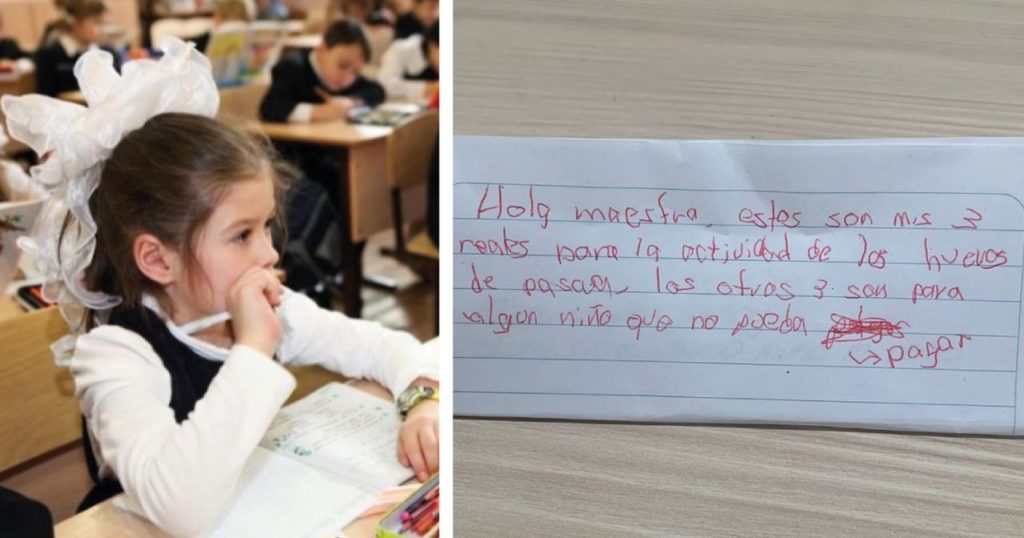 Hola maestra, estos son mis 3
reales para la actividad de los huevos
de pascua, los otros 3 son para
algun niño que no pueda
↳ pagar